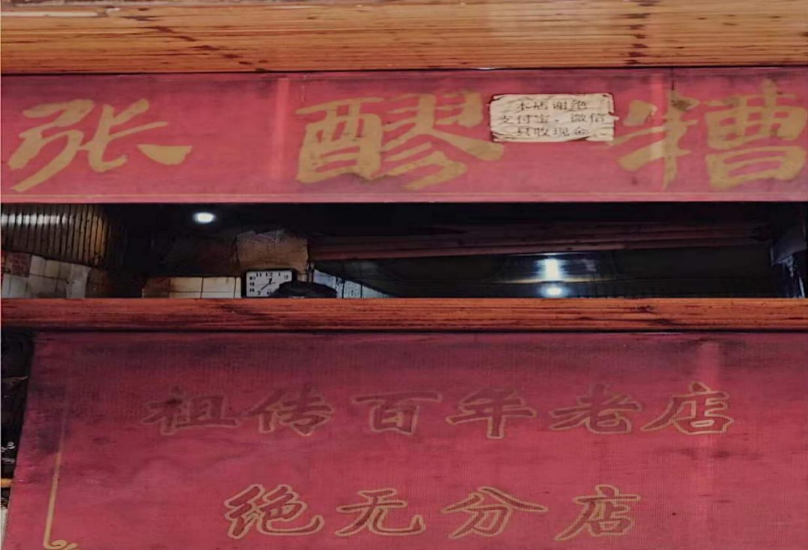 张醪糟
本店谢绝
支付宝、微信
只收现金
祖传百年老店
绝无分店